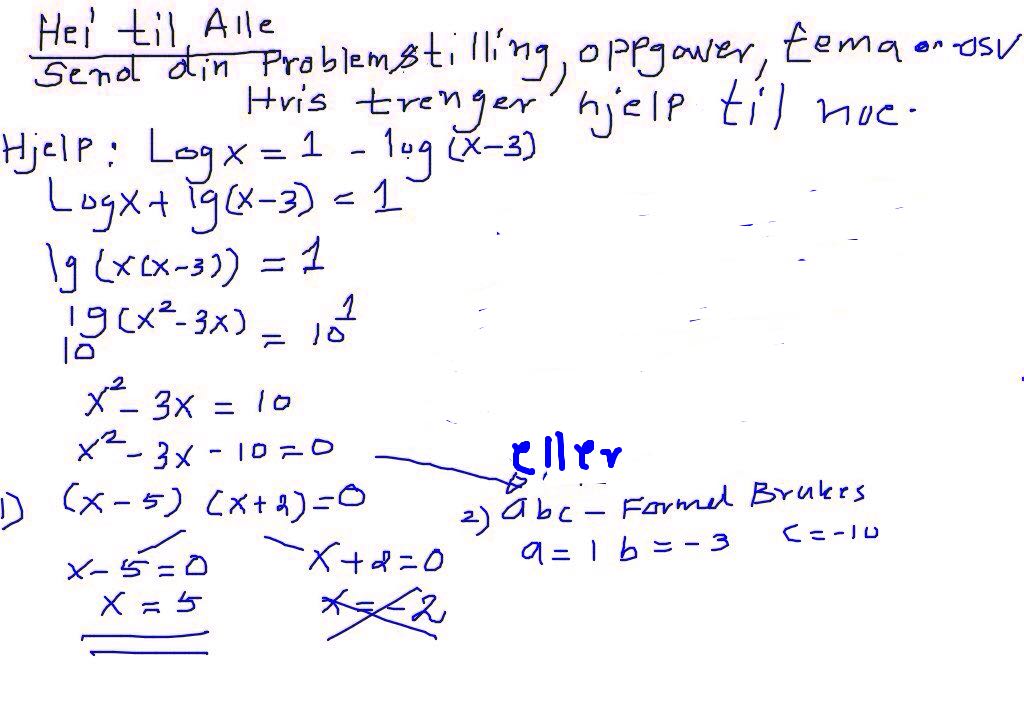 Hei til Alle
Send din Problemstilling, oppgaver, tema osv
Hvis trenger hjelp til noe.
Hjelp: Log x = 1 - log (x-3)
Logx + lg(x-3) = 1
lg (x(x-3)) = 1
10^lg(x²-3x) = 10^1
x² - 3x = 10
x² - 3x - 10 = 0
eller
1) (x - 5) (x+2) = 0
2) abc - Formel Brukes
a = 1 b = -3 c = -10
x - 5 = 0 x + 2 = 0
x = 5 x = -2